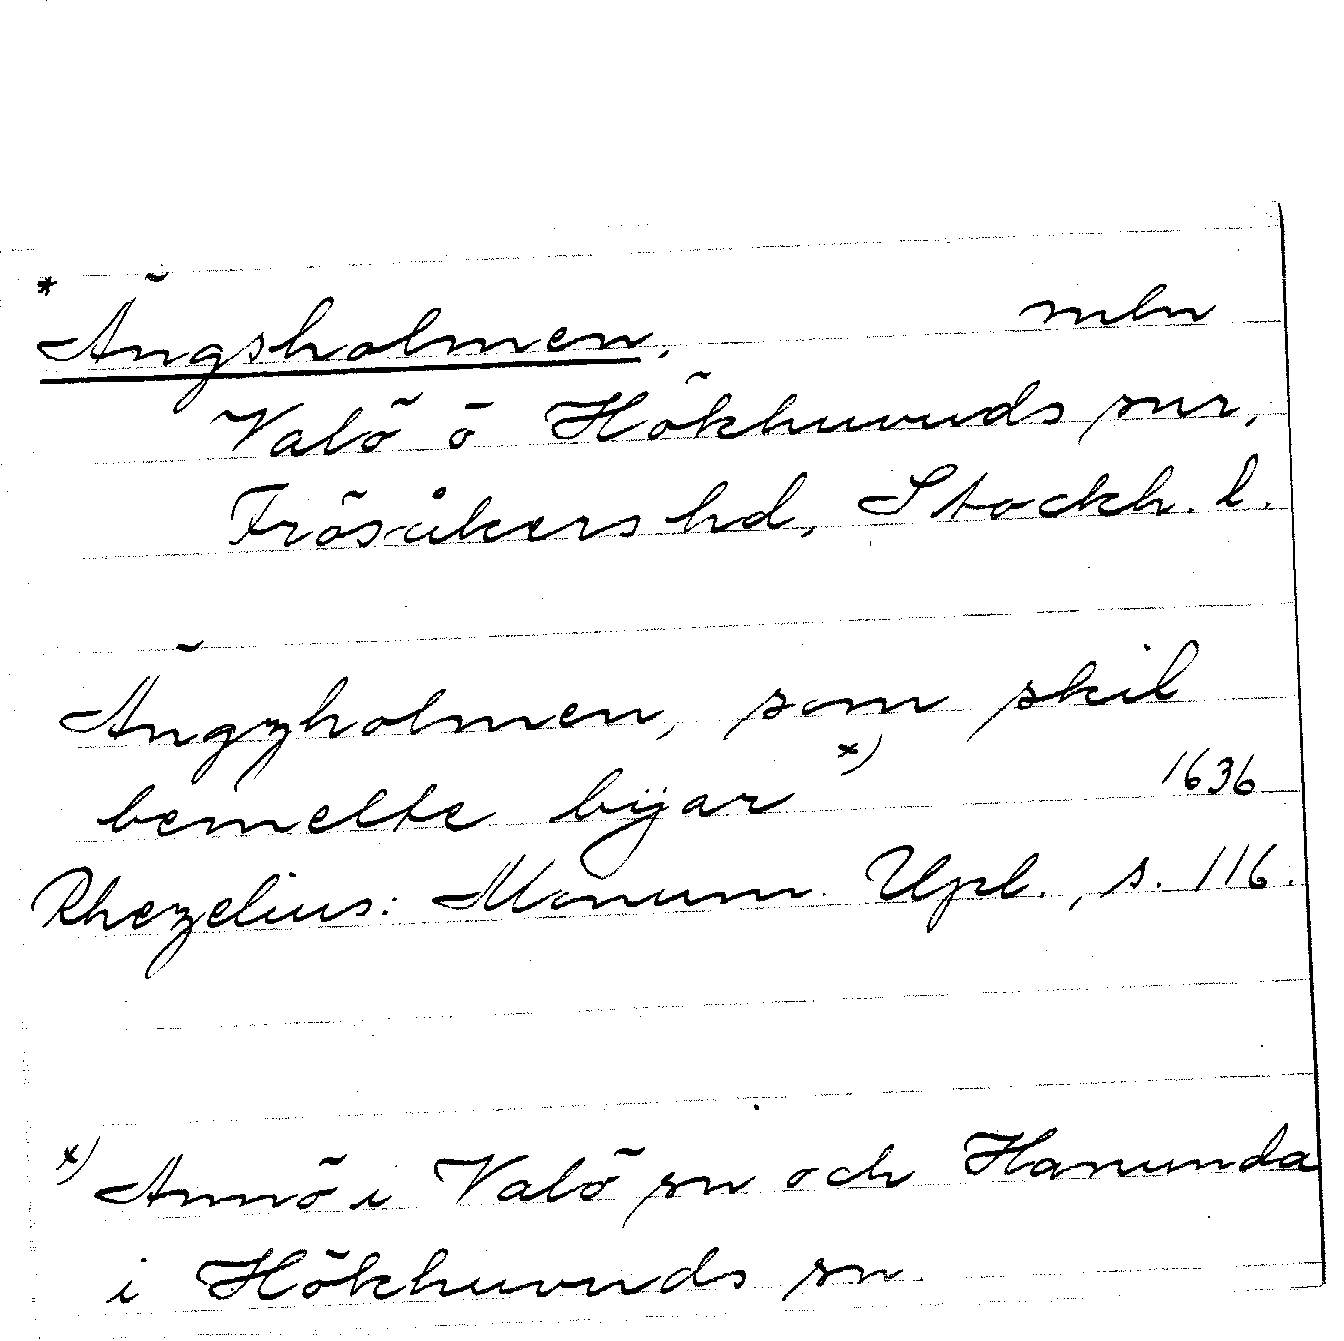 * Ängsholmen. mln
Valö o Hökhuvuds snr,
Frösåkers hd, Stockh. l.
Ängzholmen, som skil
bemelte byar x) 1636
Rhezelius: Monum. Upl., s. 116.
x) Annö i Valö sn och Hanunda
i Hökhuvuds sn